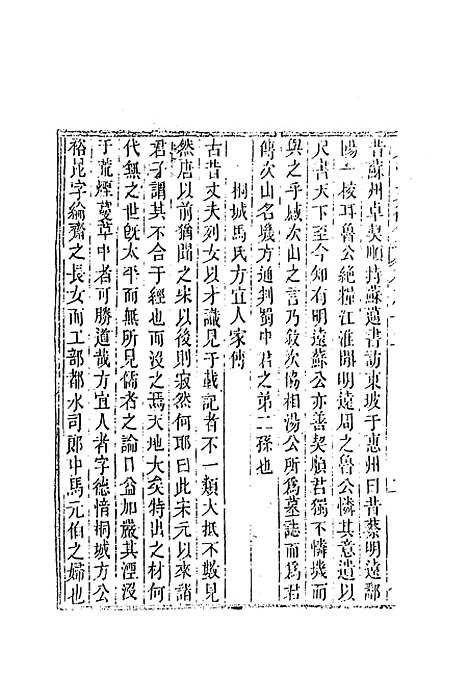 昔蘇州卓契順持蘇遺書訪東坡于惠州曰昔蔡明遠鄱
陽一校耳魯公絶糧江淮閒明遠周之魯公憐其意遺以
尺書天下至今知有明遠蘇公亦善契順君獨不憐璣而
與之乎城次山之言乃敘次協相湯公所爲墓誌而爲君
傳次山名璣方通判蜀中君之弟二孫也
桐城馬氏方宜人家傳
古昔丈夫列女以才識見于載記者不一類大抵不數見
然唐以前猶聞之宋以後則寂然何耶曰此宋元以來諸
君子謂其不合于經也而沒之焉天地大矣特出之材何
代無之世旣太平而無所見儒者之論日益加嚴其湮沒
于荒煙蔓草中者可勝道哉方宜人者字德愔桐城方公
裕昆字綸齋之長女而工部都水司郎中馬元伯之婦也